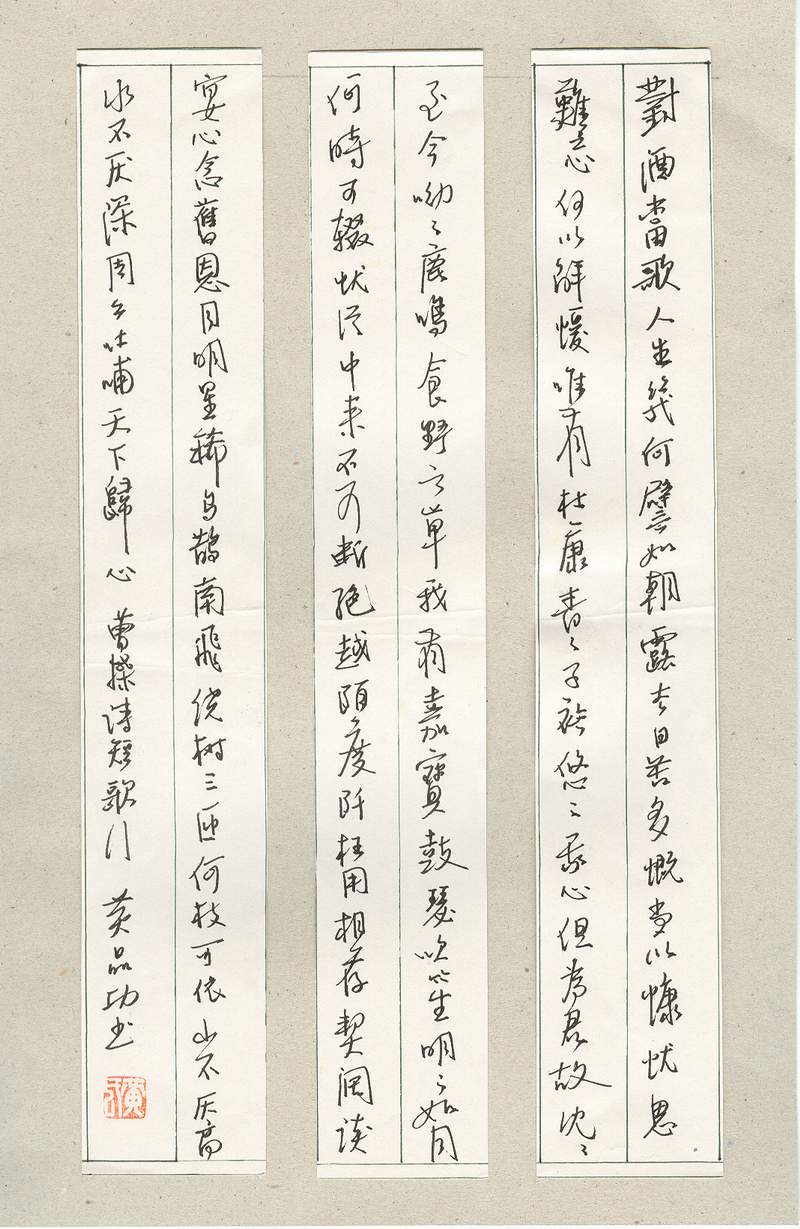 對酒當歌人生幾何譬如朝露去日苦多慨当以慷忧思
難忘何以解懮唯有杜康青〻子衿悠〻我心但為君故沈〻
至今呦〻鹿鳴食野之苹我有嘉賓鼓瑟吹笙明〻如月
何時可辍忧從中来不可断绝越陌度阡枉用相存契阔谈
宴心念舊恩月明星稀乌鹊南飛绕树三匝何枝可依山不厌高
水不厌深周公吐哺天下歸心 曹操诗短歌行 黄品功书